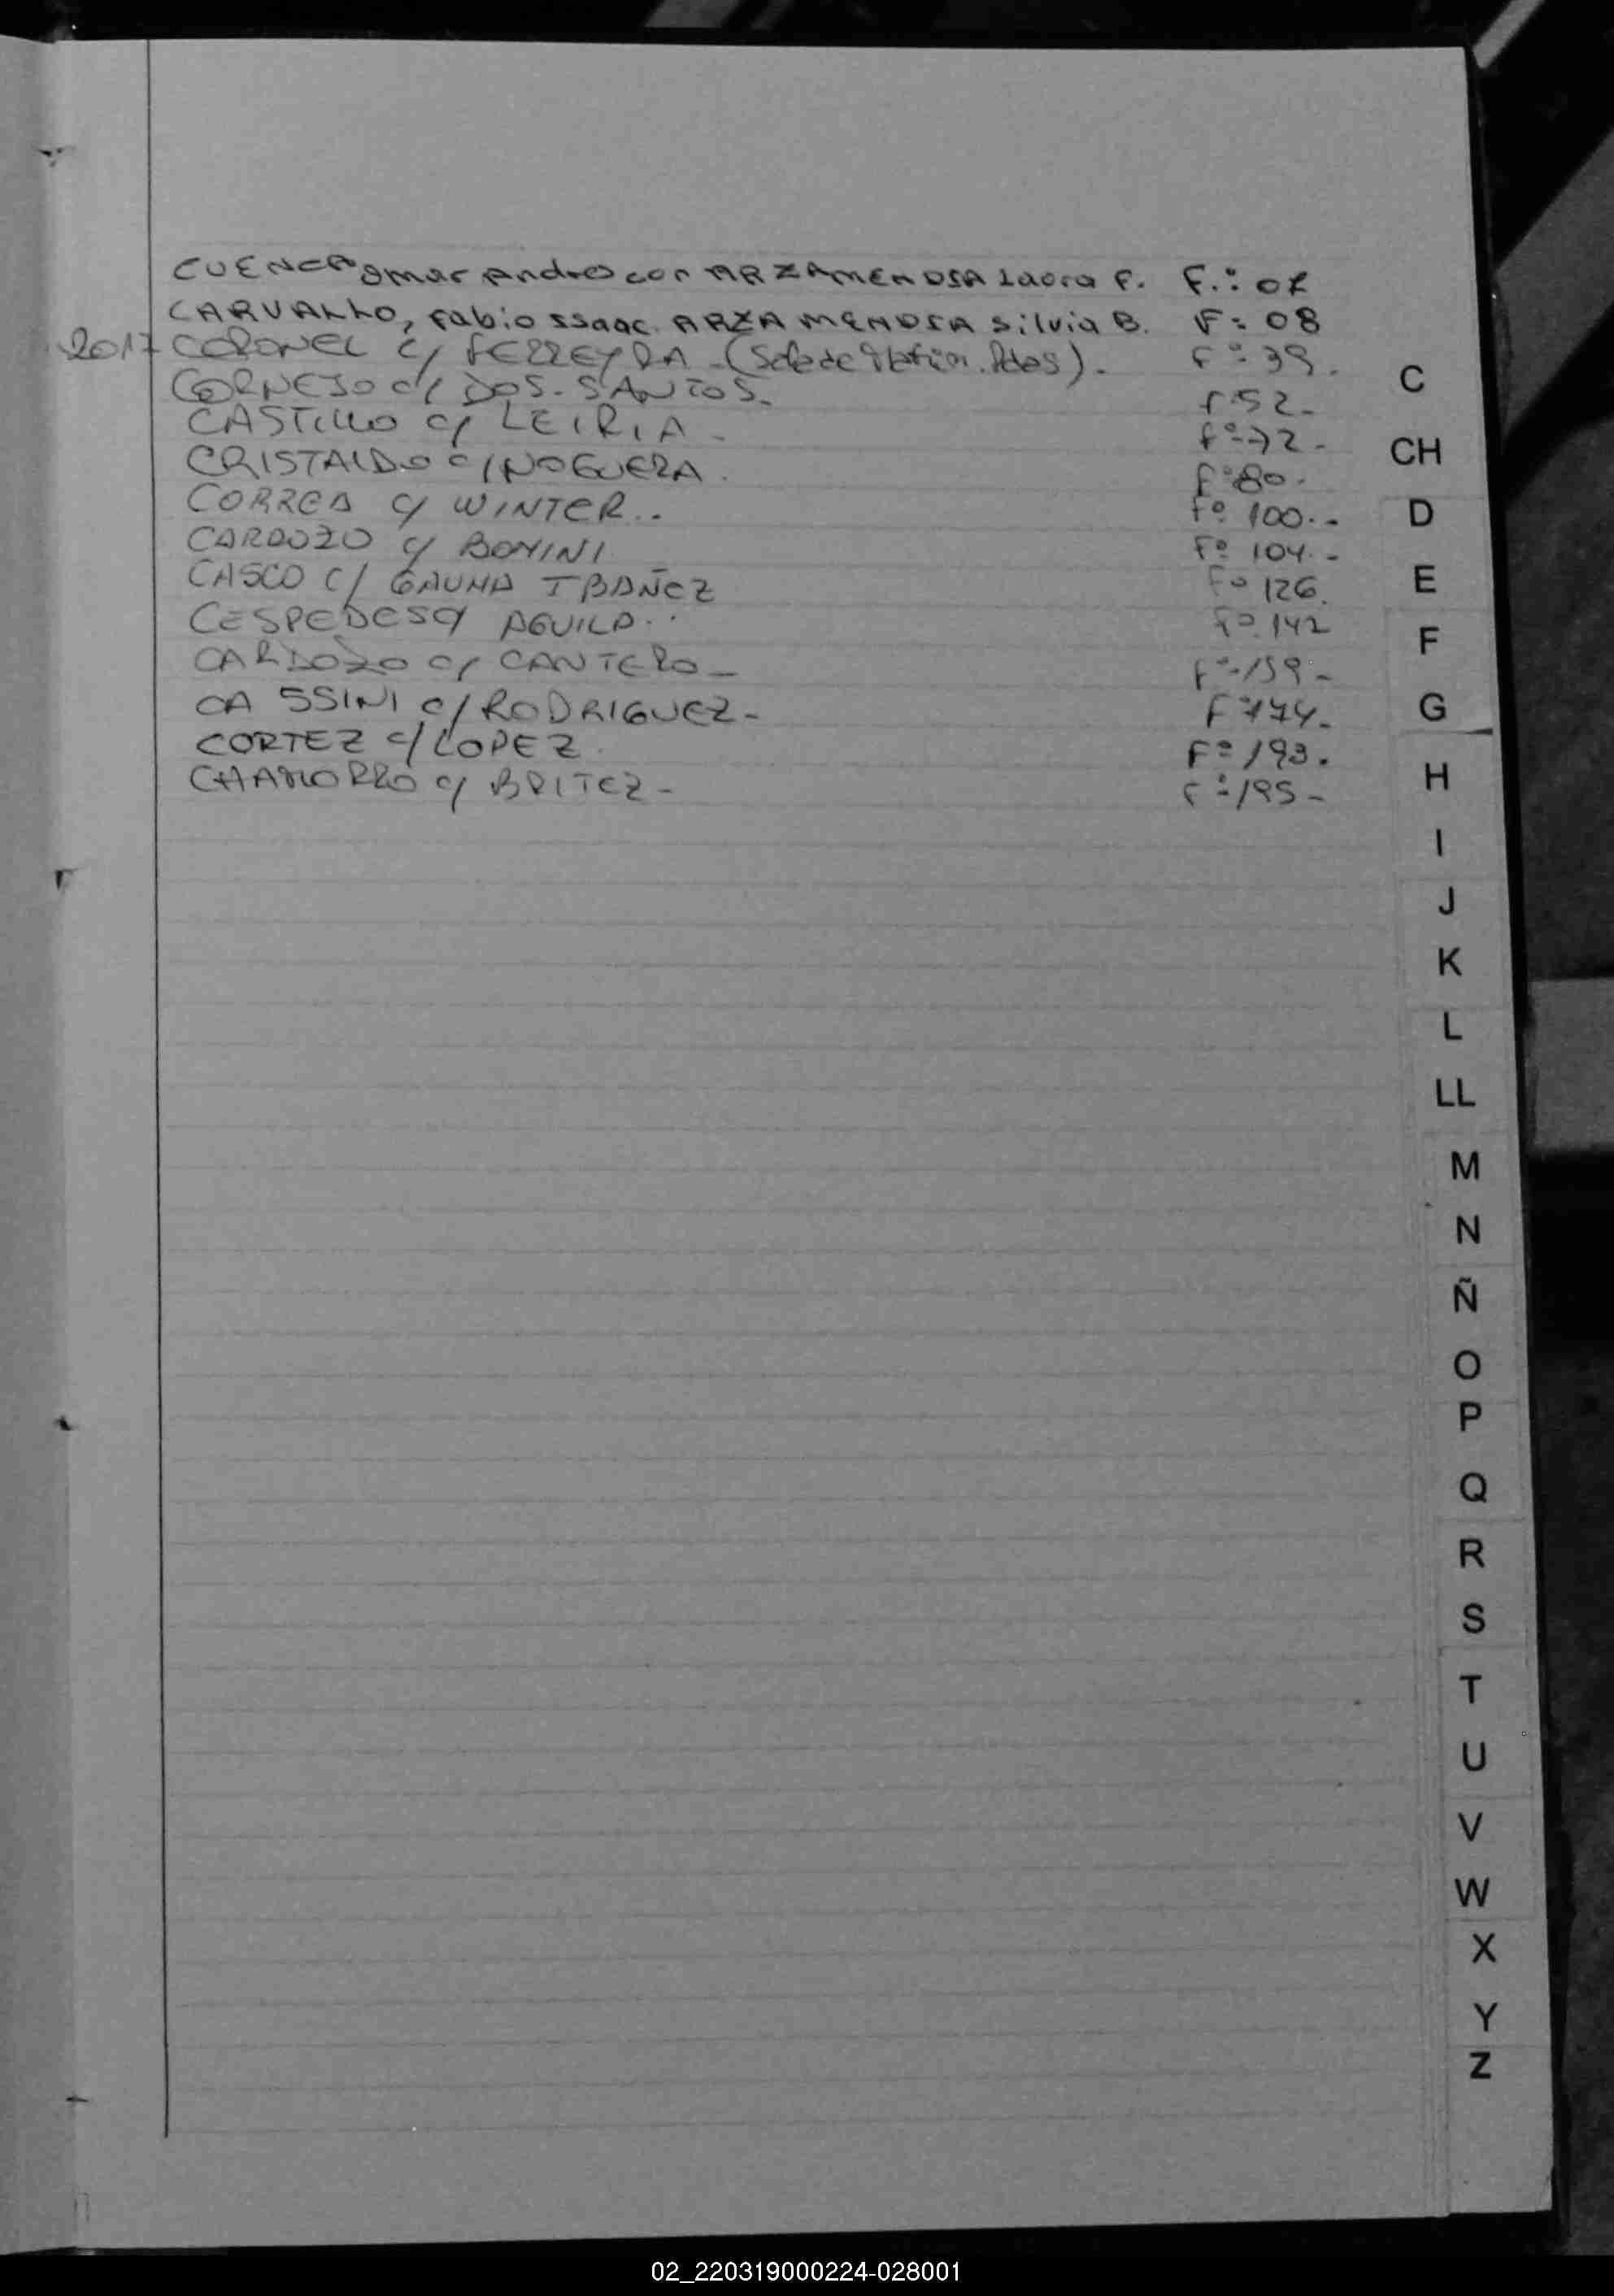 CUENCA omar Andres con ARZAMENDIA Laura F. F.: 07
CARVALHO, Fabio Isaac. ARZAMENDIA Silvia B. F: 08
2017 CORONEL c/ FERREYRA - ( ). Fº 39.
CORNEJO c/ DOS. SANTOS. F 52-
CASTILLO c/ LEIRIA - Fº 72-
CRISTALDO c/ NOGUERA. Fº 80.
CORREA c/ WINTER.. Fº 100.-
CARDOZO c/ BONINI Fº 104.-
CASCO C/ GAUNA IBAÑEZ Fº 126.
CESPEDES c/ AGUILA.. Fº 142
CARDOZO c/ CANTERO- Fº 159-
CASSINI c/ RODRIGUEZ- Fº 174-
CORTEZ c/ LOPEZ. Fº 193.
CHAMORRO c/ BRITEZ- Fº 195-
C
CH
D
E
F
G
H
I
J
K
L
LL
M
N
Ñ
O
P
Q
R
S
T
U
V
W
X
Y
Z
02_220319000224-028001